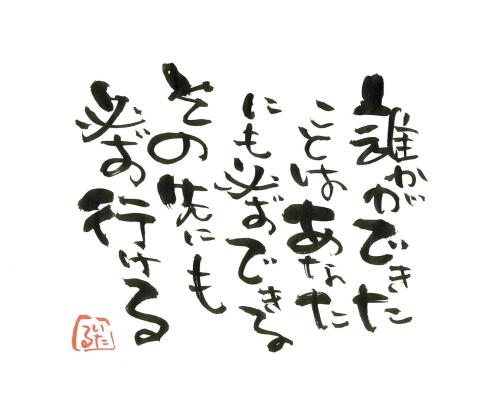 誰かができた
ことはあなた
にも必ずできる
その先にも
必ず行ける
いたる